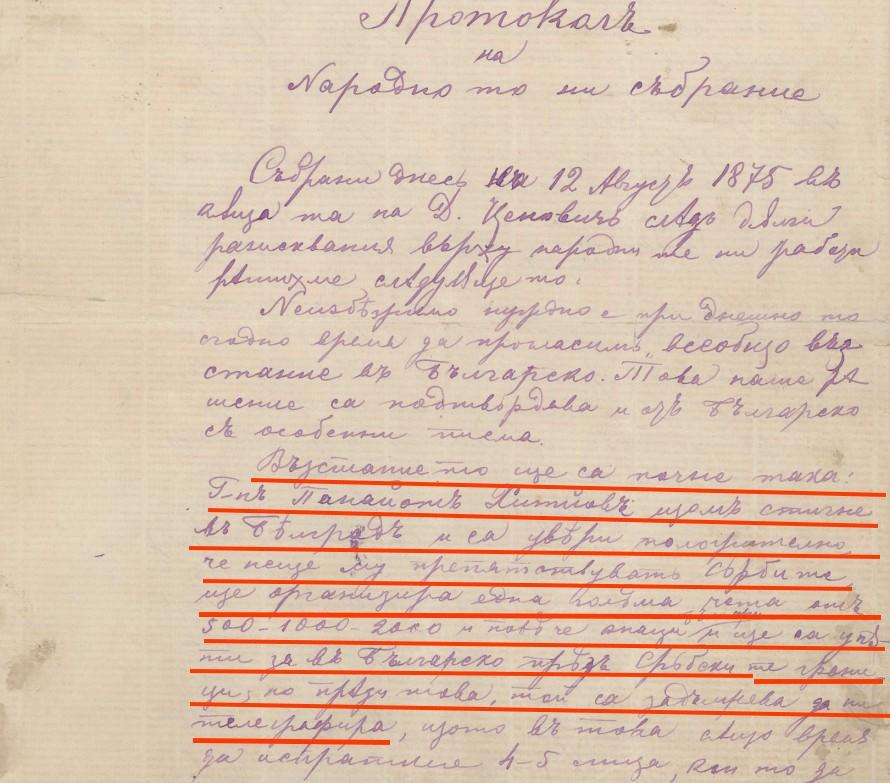 Протоколъ
на
Народно то ни събрание
Събрани днесь на 12 Августъ 1875 въ
къща та на Д. Ценовичъ слѣдъ дълги
разисквания върху народни те ни работи
рѣшихме слѣдующето:
Неизбѣжимо нуждно е при днешно то
сгодно время да прогласимъ всеобщо въз
стание въ Българско. Това наше рѣ
шение са подтвърдява и отъ Българско
съ особенни писма.
Възстание то ще са почне така:
Г-нъ Панайотъ Хитовъ щомъ стигне
въ Бѣлградъ и са увѣри положително
че неще му препятствуватъ Сърбите,
ще организира една голѣма чета отъ
500-1000-2000 и повѣче юнаци и ще са упѫ
ти за въ Българско прѣзъ Сръбски те грани
ци, но прѣди това, той са задължева да ни
телеграфира, щото въ това също время
да испратиме 4-5 лица, кои то да